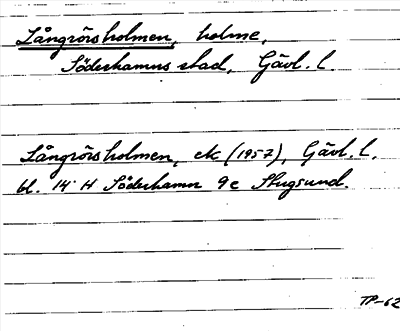 Långrörsholmen, holme,
Söderhamns stad, Gävl. l.
Långrörsholmen, ek (1957), Gävl. l.
bl. 14 H Söderhamn 9c Stugsund.
TP-62